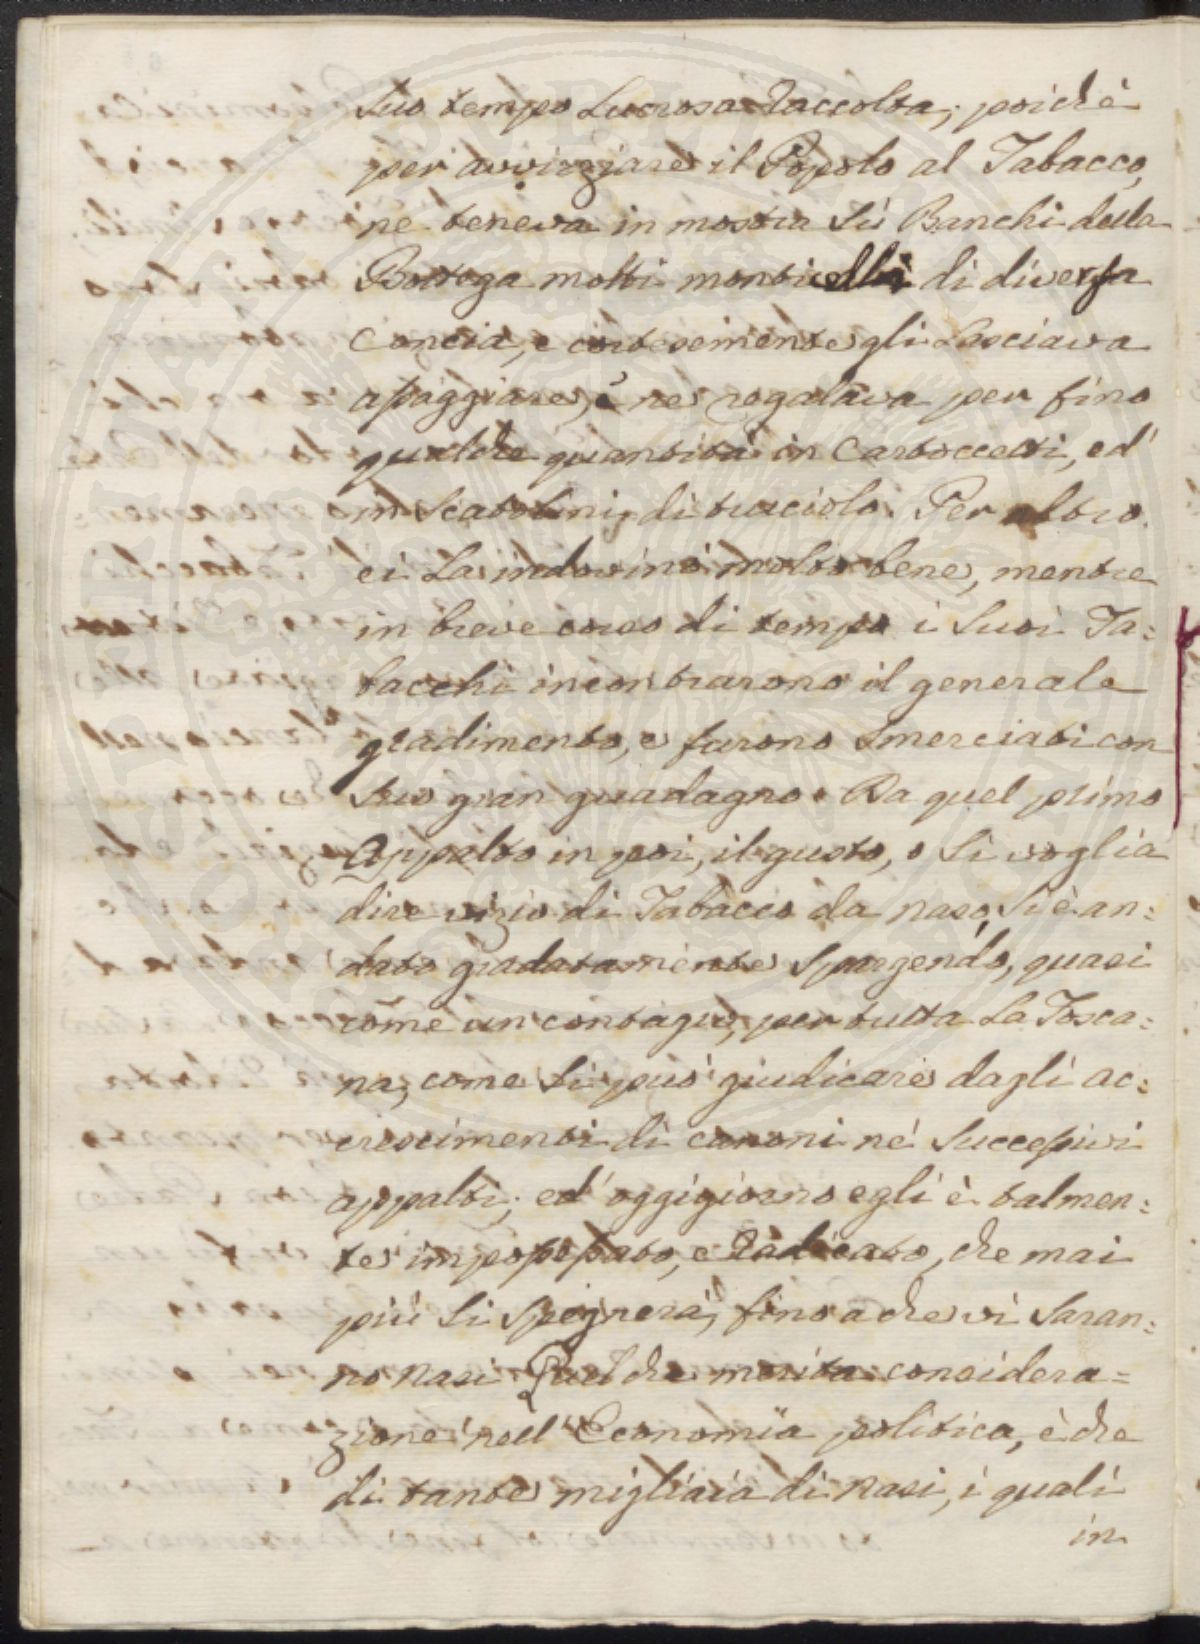 suo tempo Lucrosa Raccolta; poichè
per avvizziare il Popolo al Tabacco,
ne teneva in mostra sù Banchi della
Bottega molti monticelli di diversa
Concia, e cortesemente gli Lasciava
assaggiare, e ne regalava per fino
qualche quantità in Cartoccetti, ed'
in Scatolini di truciolo. Per altro
ei La indovinò molto bene, mentre
in breve corso di tempo i suoi Ta=
bacchi incontrarono il generale
gradimento, e furono smerciati con
suo gran guadagno. Da quel primo
Appalto in poi, il gusto, o si voglia
dire vizio di Tabacco da naso, si è an=
dato gradatamente spargendo, quasi
come un contagio, per tutta La Tosca=
na, come si può giudicare dagli ac=
crescimenti di canoni nè successivi
appalti; ed' oggigiorno egli è talmen=
te impossessato, e Radicato, che mai
più si spegnerà, fino a che vi saran=
no nasi. Quel che merita considera=
zione nell' Economia politica, è che
di tante migliaia di nasi, i quali
in